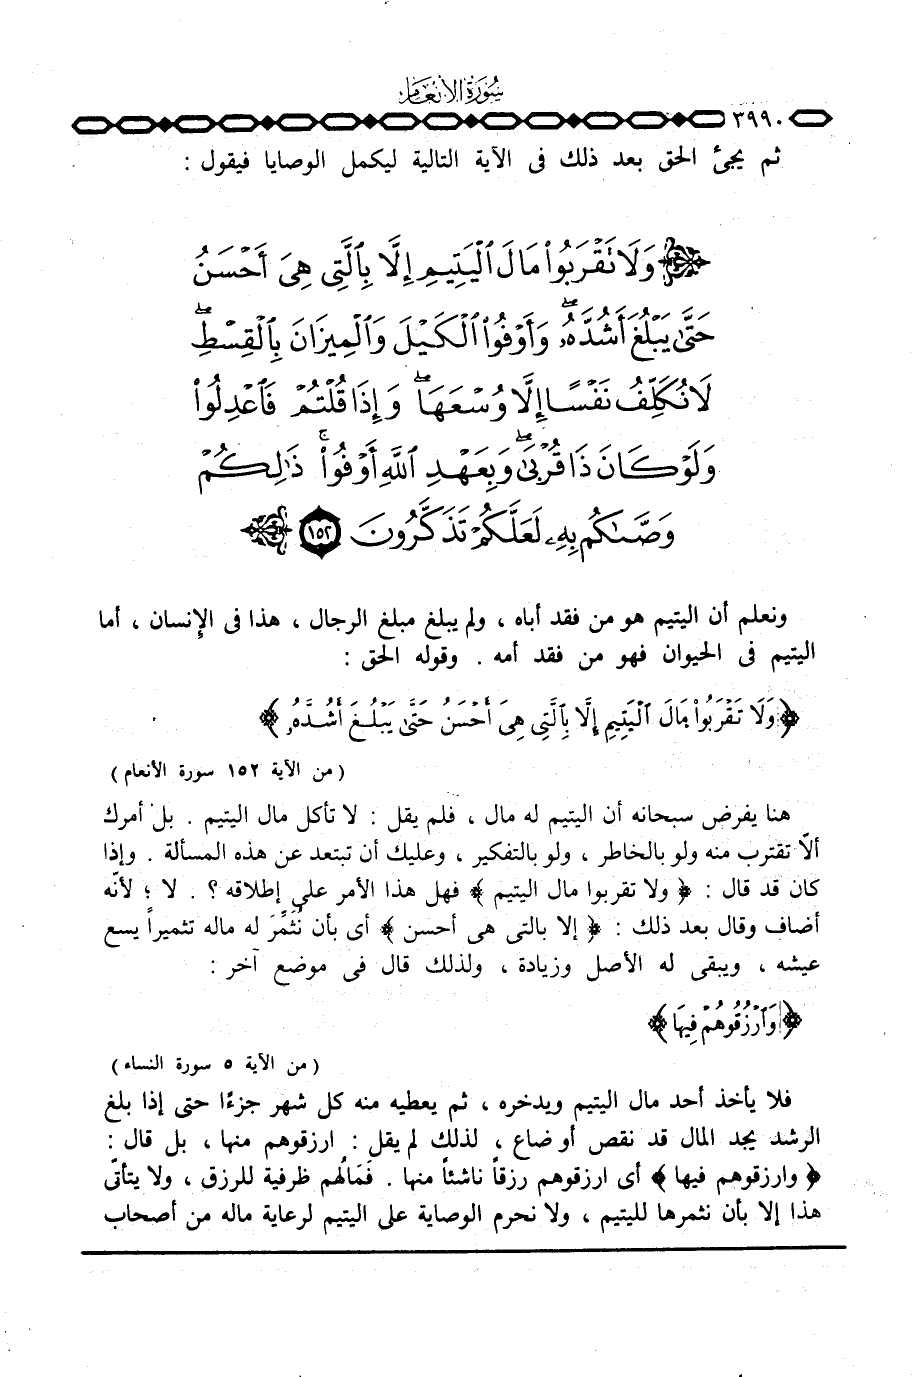 سورة الأنعام
٣٩٩٠
ثم يجئ الحق بعد ذلك فى الآية التالية ليكمل الوصايا فيقول :
وَلَا تَقْرَبُوا۟ مَالَ ٱلْيَتِيمِ إِلَّا بِٱلَّتِى هِىَ أَحْسَنُ
حَتَّىٰ يَبْلُغَ أَشُدَّهُۥ ۖ وَأَوْفُوا۟ ٱلْكَيْلَ وَٱلْمِيزَانَ بِٱلْقِسْطِ ۖ
لَا نُكَلِّفُ نَفْسًا إِلَّا وُسْعَهَا ۖ وَإِذَا قُلْتُمْ فَٱعْدِلُوا۟
وَلَوْ كَانَ ذَا قُرْبَىٰ ۖ وَبِعَهْدِ ٱللَّهِ أَوْفُوا۟ ۚ ذَٰلِكُمْ
وَصَّىٰكُم بِهِۦ لَعَلَّكُمْ تَذَكَّرُونَ ١٥٢
ونعلم أن اليتيم هو من فقد أباه ، ولم يبلغ مبلغ الرجال ، هذا فى الإنسان ، أما
اليتيم فى الحيوان فهو من فقد أمه . وقوله الحق :
﴿ وَلَا تَقْرَبُوا۟ مَالَ ٱلْيَتِيمِ إِلَّا بِٱلَّتِى هِىَ أَحْسَنُ حَتَّىٰ يَبْلُغَ أَشُدَّهُۥ ﴾
( من الآية ١٥٢ سورة الأنعام )
هنا يفرض سبحانه أن اليتيم له مال ، فلم يقل : لا تأكل مال اليتيم . بل أمرك
ألاّ تقترب منه ولو بالخاطر ، ولو بالتفكير ، وعليك أن تبتعد عن هذه المسألة . وإذا
كان قد قال : ﴿ ولا تقربوا مال اليتيم ﴾ فهل هذا الأمر على إطلاقه ؟ . لا ؛ لأنّه
أضاف وقال بعد ذلك : ﴿ إلا بالتى هى أحسن ﴾ أى بأن نُثَمِّرَ له ماله تثميراً يسع
عيشه ، ويبقى له الأصل وزيادة ، ولذلك قال فى موضع آخر :
﴿ وَٱرْزُقُوهُمْ فِيهَا ﴾
( من الآية ٥ سورة النساء )
فلا يأخذ أحد مال اليتيم ويدخره ، ثم يعطيه منه كل شهر جزءًا حتى إذا بلغ
الرشد يجد المال قد نقص أو ضاع ، لذلك لم يقل : ارزقوهم منها ، بل قال :
﴿ وارزقوهم فيها ﴾ أى ارزقوهم رزقاً ناشئاً منها . فَمَالُهم ظرفية للرزق ، ولا يتأتّى
هذا إلا بأن نثمرها لليتيم ، ولا نحرم الوصاية على اليتيم لرعاية ماله من أصحاب